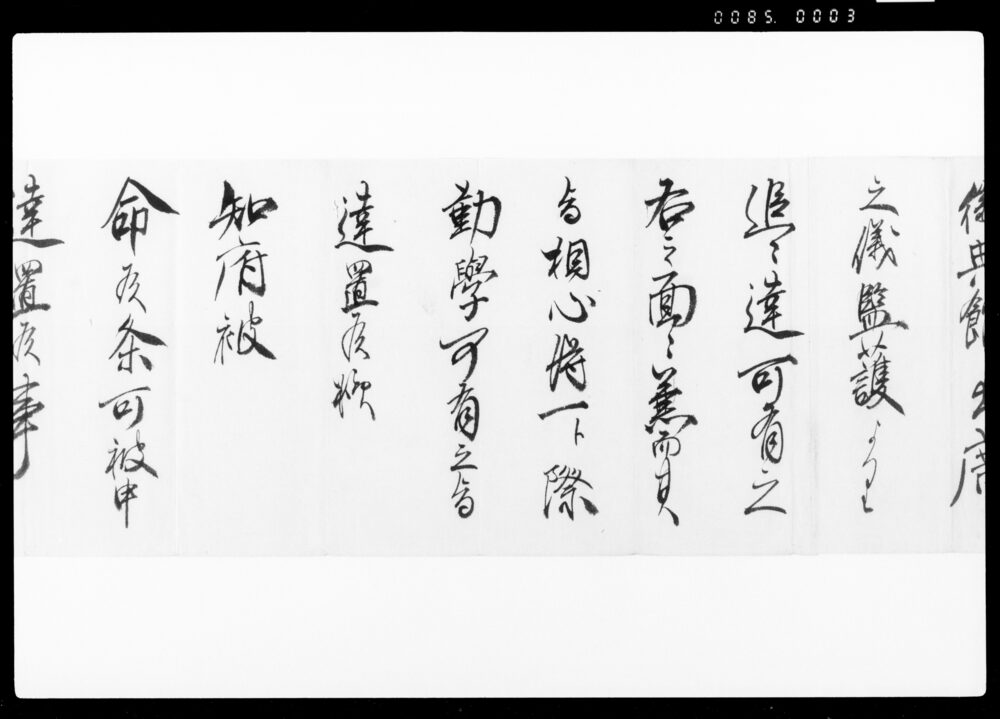 0085. 0003
徽典館出席
之儀監護より
追々達可有之
右之面々、兼而其
旨相心得一ト際
勤學可有之旨
達置候様
知府被
命候条可被申
達置候事